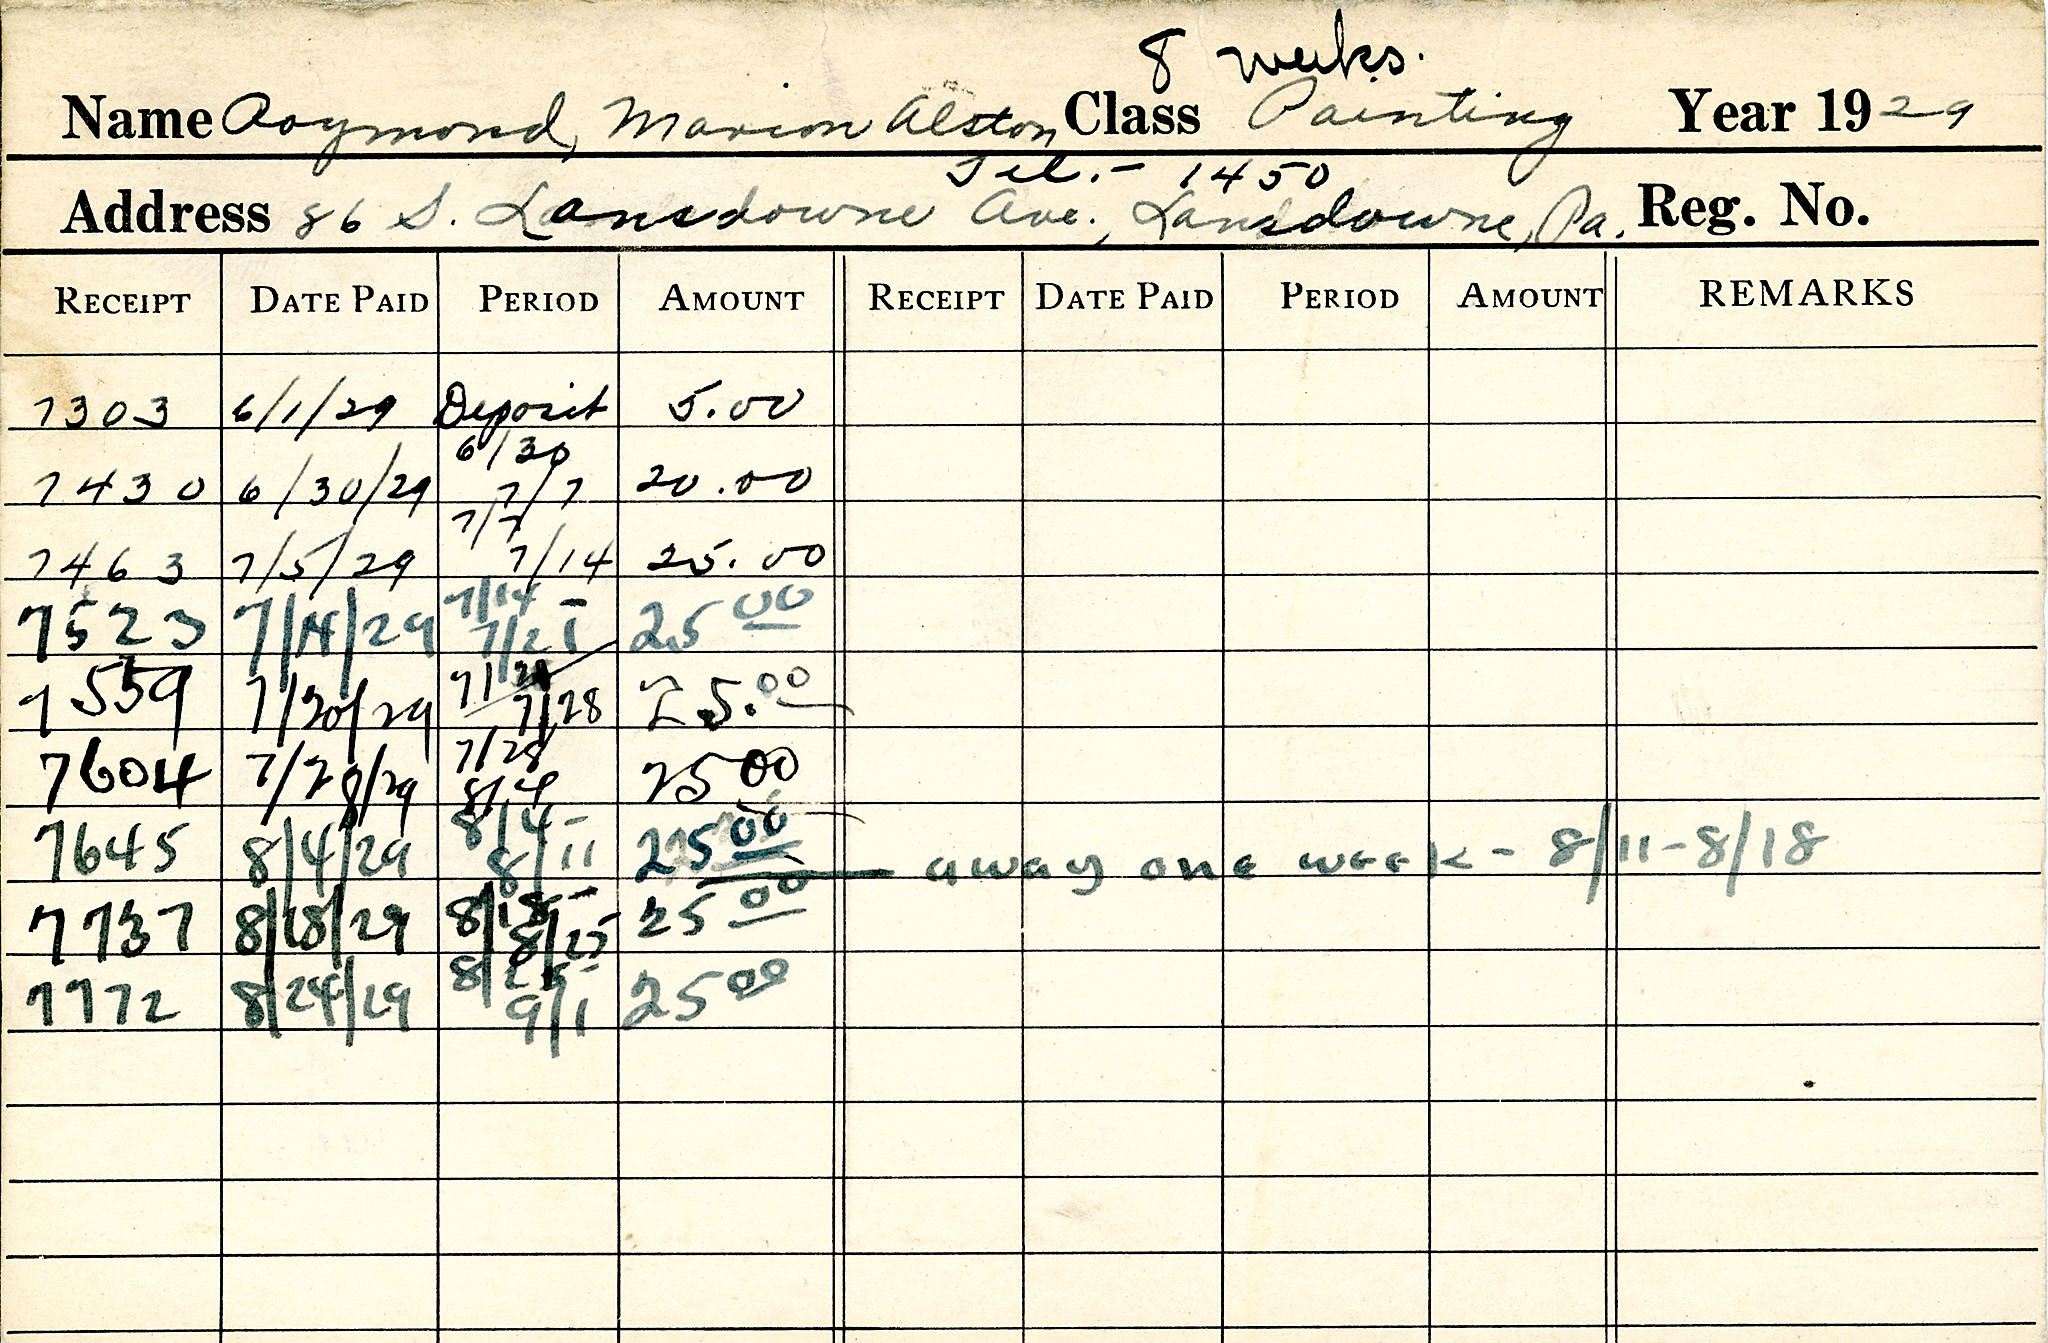 8 weeks.
Name Raymond, Marion Alston Class Painting Year 1929
Tel.- 1450
Address 86 S. Lansdowne Ave., Lansdowne, Pa. Reg. No.
RECEIPT DATE PAID PERIOD AMOUNT RECEIPT DATE PAID PERIOD AMOUNT REMARKS
7303 6/1/29 Deposit 5.00
6/30
7430 6/30/29 7/7 20.00
7/7
7463 7/5/29 7/14 25.00
7/14 -
7523 7/14/29 7/21 25 00
7/21
7559 7/20/29 7/28 25.00
7/28
7604 7/28/29 8/4 25 00
8/4-
7645 8/4/29 8/11 25 00 away one week - 8/11-8/18
8/18-
7737 8/18/29 8/25 25 00
8/25-
7772 8/24/29 9/1 25 00